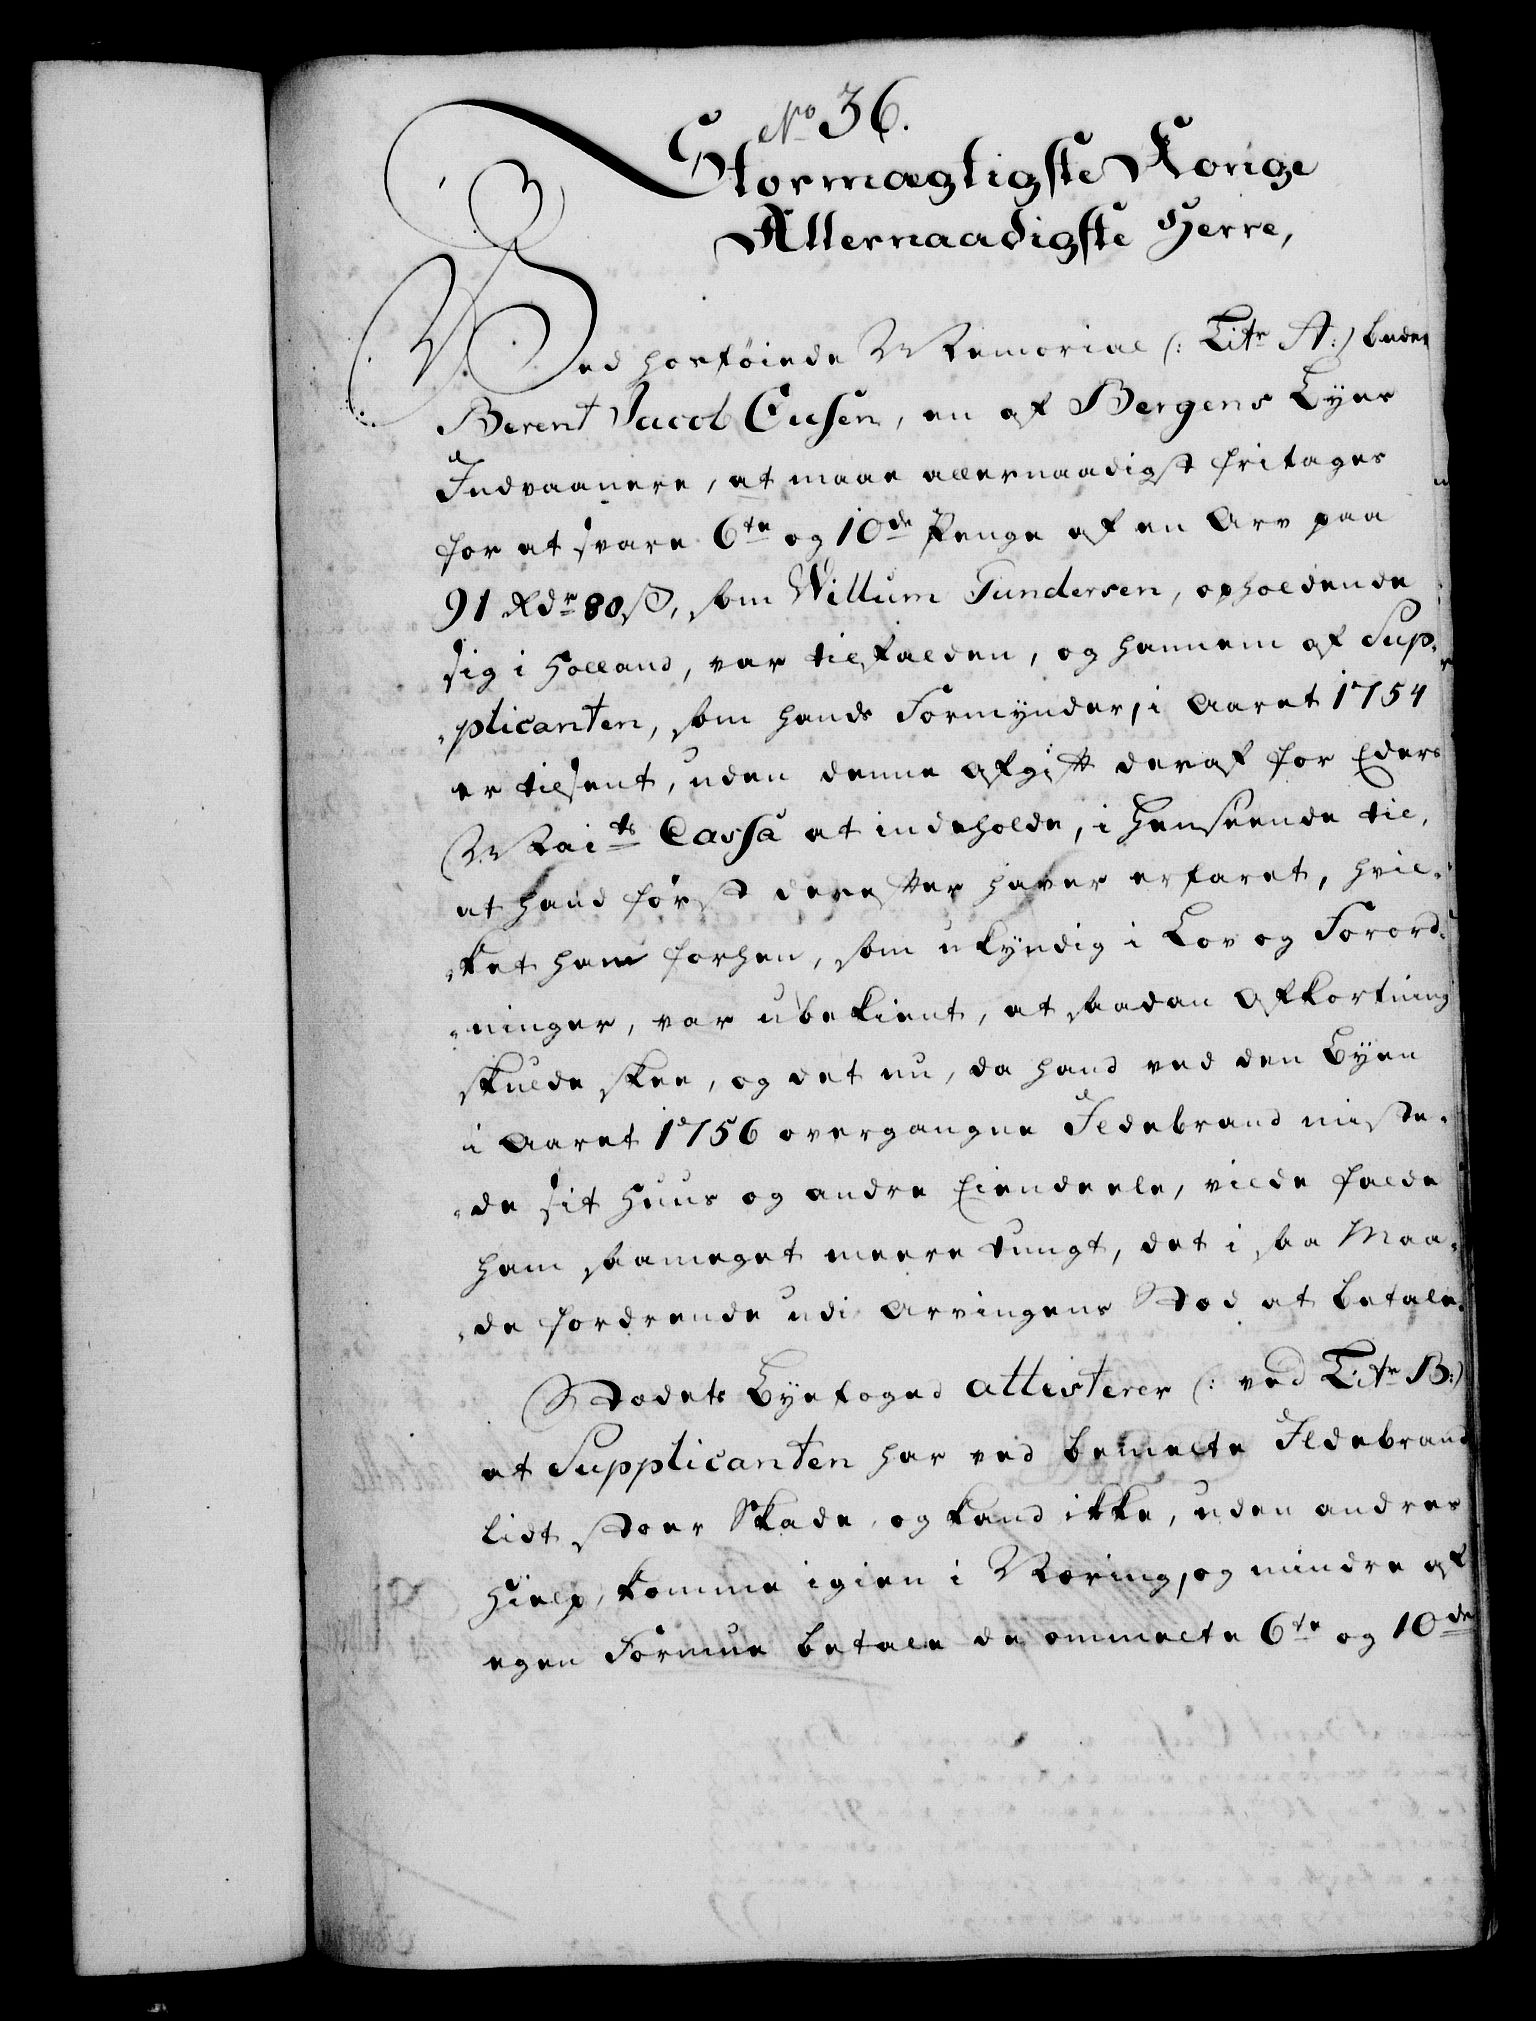 No 36.
Stormægtigste Konge
Allernaadigste Herre,
Ved hosføiede Memorial (: Litr A:) beder
Berent Jacob Ellsen, en af Bergens Byes
Indvaanere, at maae allernaadigst fritages
for at svare 6te og 10de Penge af en Arv paa
91 Rdr 80 s, som Willum Gundersen, opholdende
sig i Holland, var tilfalden, og hannem af Sup-
plicanten, som hands Formynder, i Aaret 1754
er tilsent, uden denne Afgift deraf for Eders
Maits Cassa at indeholde, i Henseende til,
at hand først derefter haver erfaret, hvil-
ket ham forhen, som ukyndig i Lov og Forord-
ninger, var ubekient, at saadan Afkortning
skulde skee, og det nu, da hand ved den Byen
i Aaret 1756 overgangne Ildebrand miste-
de sit Huus og andre Eiendeele, vilde falde
ham saameget meere tungt, det i saa Maa-
de fordrende udi Arvingens Sted at betale.
Stedets Byefoged attesterer (: ved Litr B:)
at Supplicanten har ved bemelte Ildebrand
lidt stoer Skade, og kand ikke, uden andres
Hielp, komme igien i Næring, og mindre af
egen Formue betale de ommelte 6te og 10de